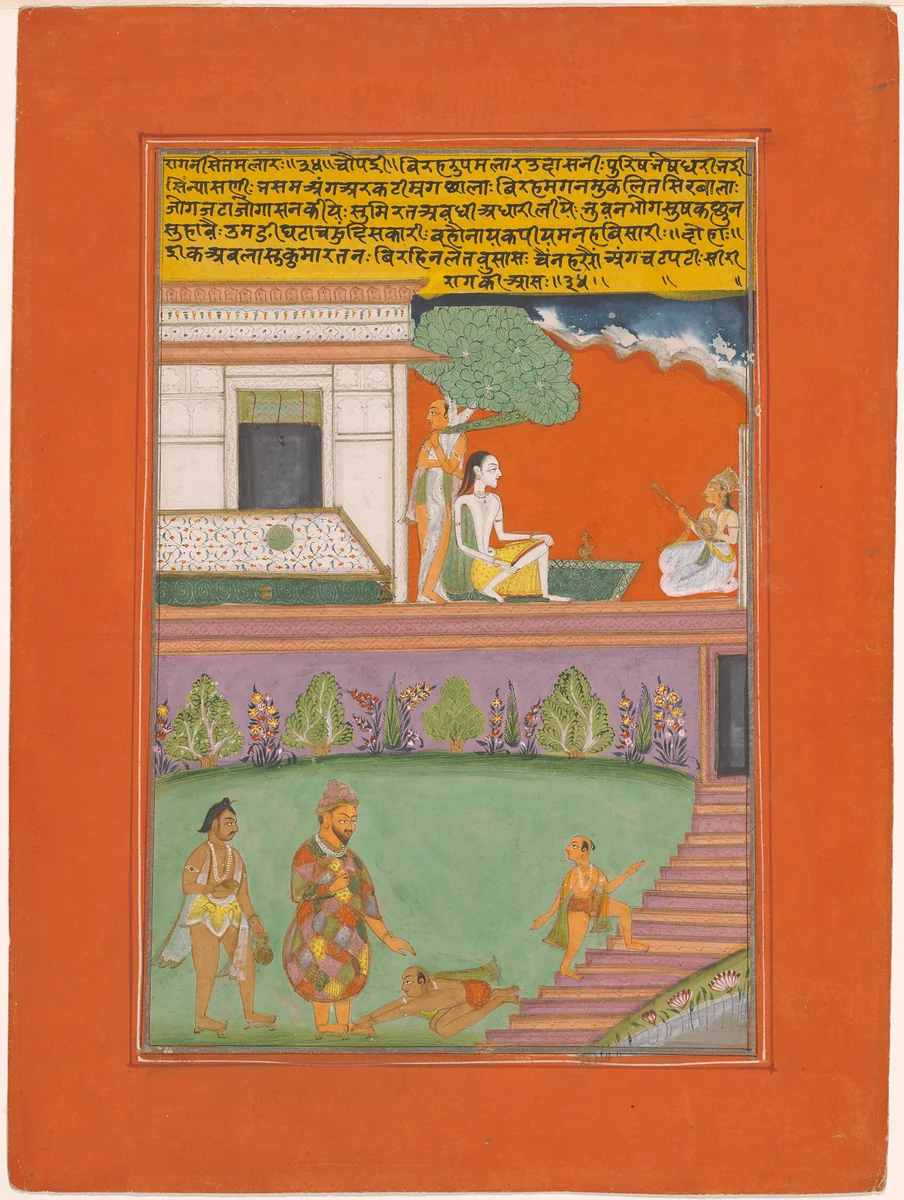 रागनी सेतमलार॥३५॥चौपई॥ बिरहरुप मलार उदासनीः पुरिष नेष धरी जइी
सिंन्यासणीः भसम अंग अर कटी म्रगछालाः बिरह मगन मुकलित सिर बालाः
जोग जटा जोगासन कीयेः सुमिरत अवधी अधारी लीयेः भुवन भोग सुष कछु न
सुहाबैः उमटी घटा चहुं दिस कारीः वहौ नायक पीय मनह बिसारीः॥दोहाः॥
इीक अबला सुकुमार तनः बिरहि न लेत वुसासः चैन हरौ अंग चटपटीः सीरी
राग की आसः॥३५॥